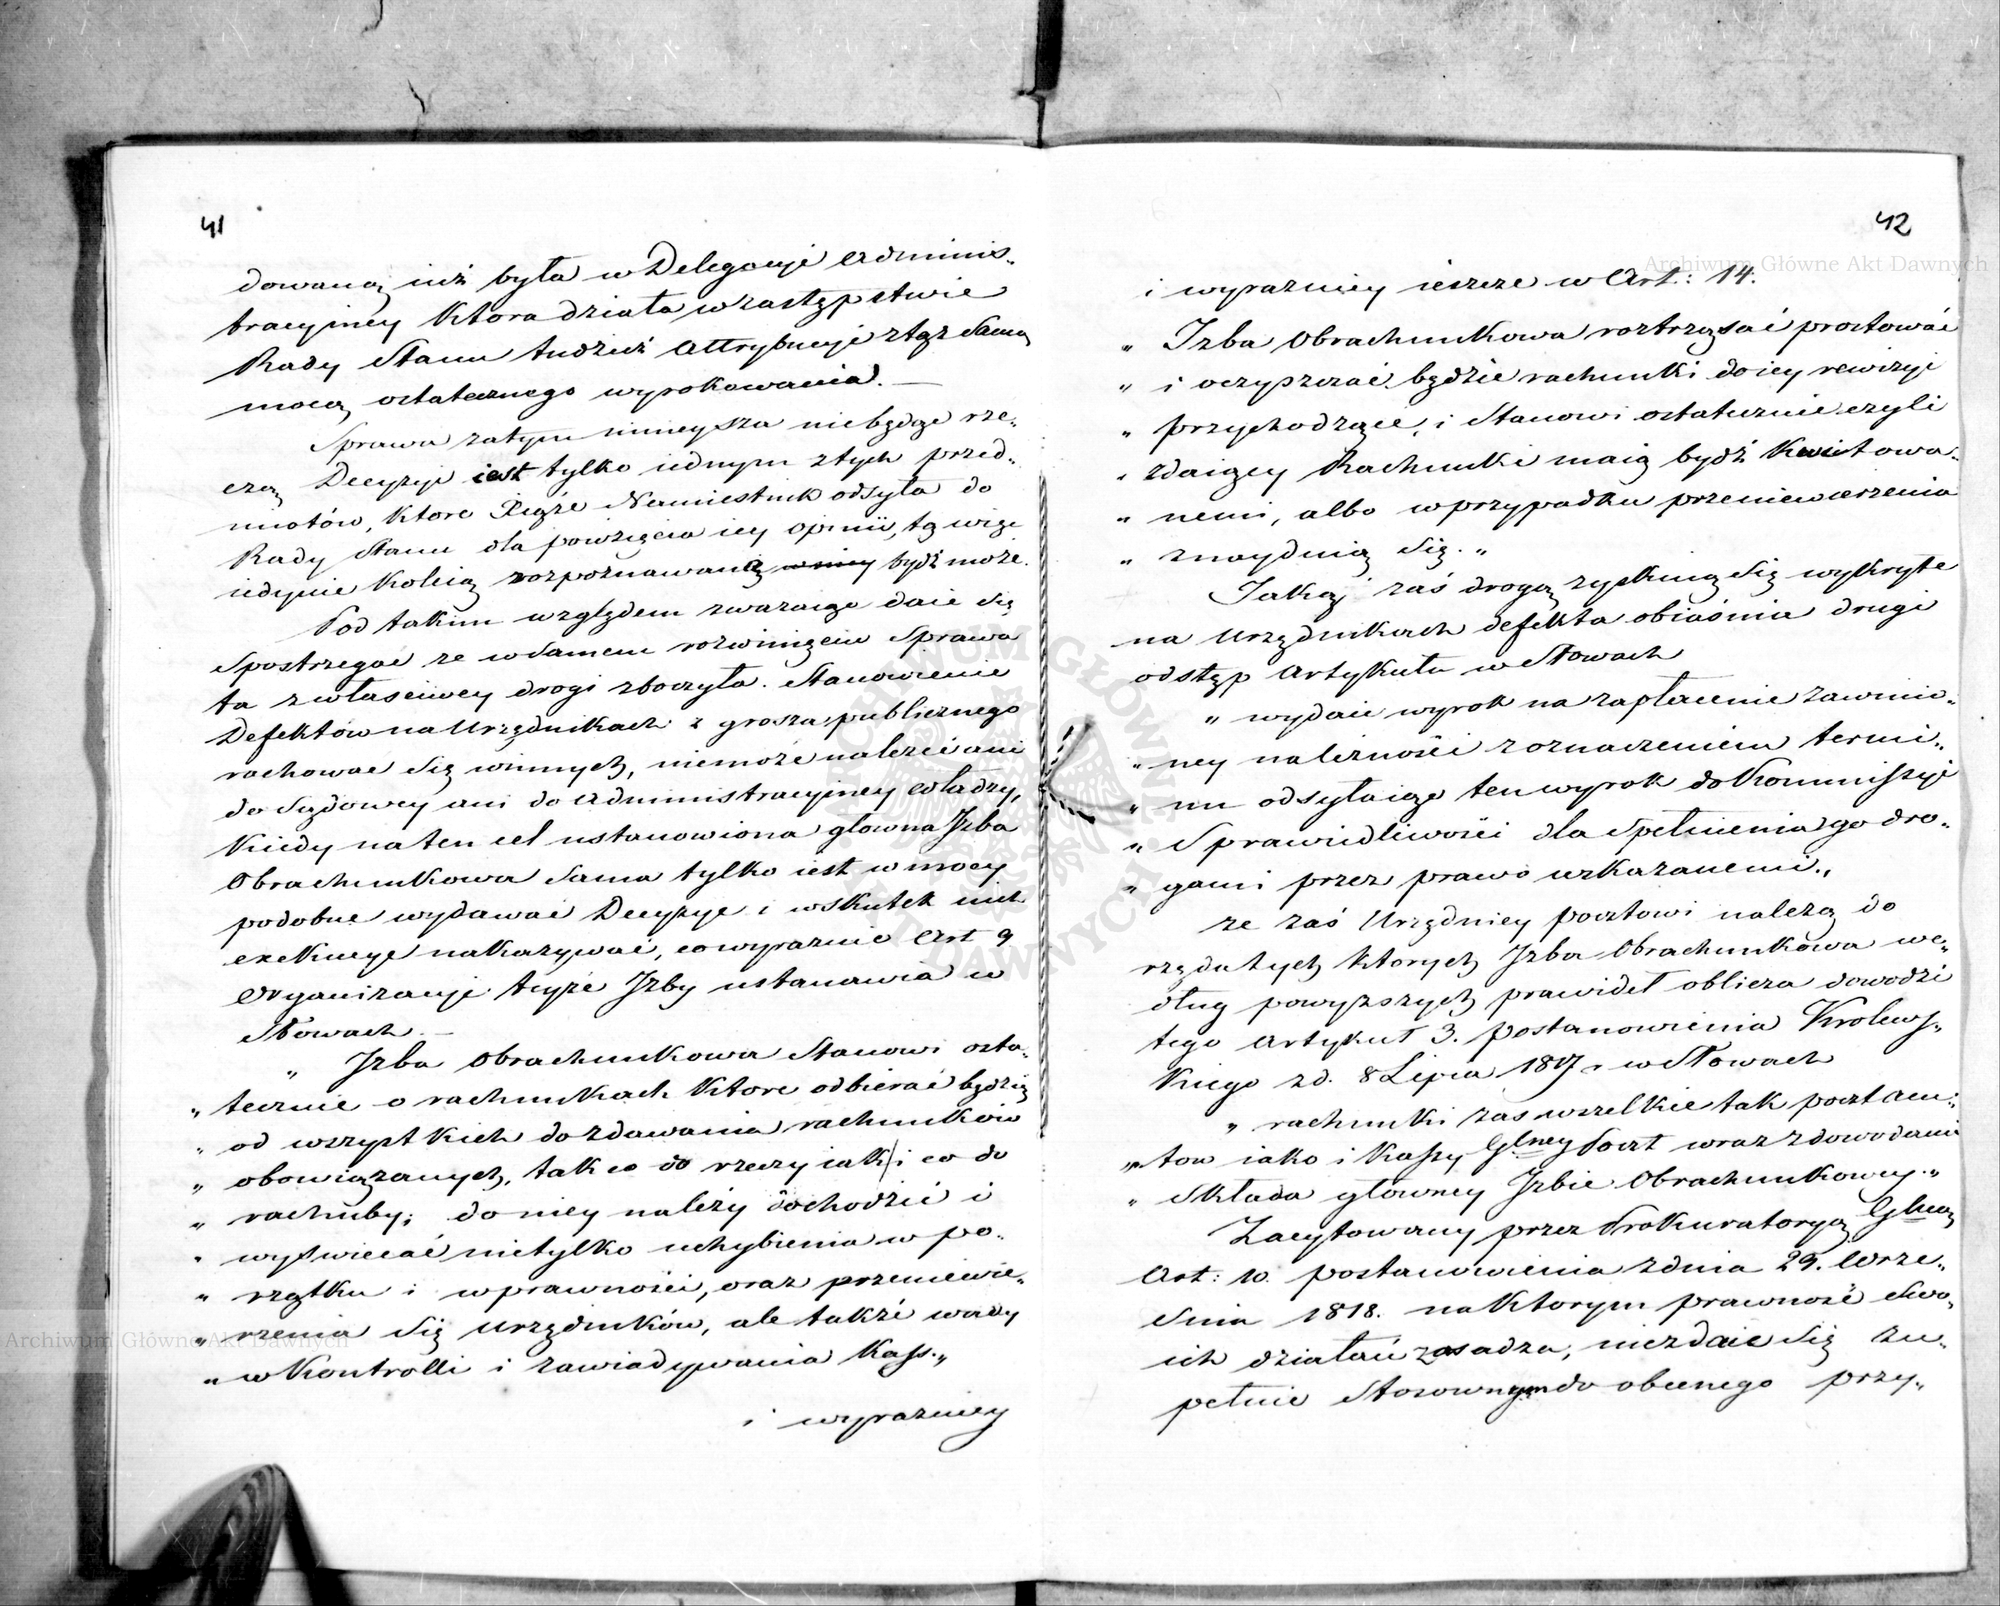 41
dowaną iuż była w Delegacyi Adminis„
tracyiney Ktora działa w zastępstwie
Rady Stanu tudzież Attrybucyi z tąż Samą
mocą ostatecznego wyrokowania. —
Sprawa zatym ninieysza niebędąc rze„
czą Decyzyi iest tylko iednym z tych przed„
miotów, Ktore Xiąże Namiestnik odsyła do
Rady Stanu dla powzięcia iey opinii, tą więc
iedynie Koleią rozpoznawaną bydź może.
Pod takim względem zważaiąc daie się
spostrzegać ze w samem rozwinięciu Sprawa
ta z właściwey drogi zboczyła. Stanowienie
Defektów na Urzędnikach z grosza publicznego
rachować się winnych, niemoże należeć ani
do Sądowey ani do Administracyiney władzy,
Kiedy na ten cel ustanowiona głowna Jzba
Obrachunkowa Sama tylko iest w mocy
podobne wydawać Decyzye i w skutek nich
exekucye nakazywać, co wyraznie Art 9
Organizacyi teyże Jzby ustanawia w
Słowach. —
„ Jzba Obrachunkowa Stanowi osta„
„ tecznie o rachunkach Ktore odbierać będzie
„ od wszystkich do zdawania rachunków
„ obowiązanych, tak co do rzeczy iak i co do
„ rachuby; do niey należy dochodzić i
„ wyświecać nietylko uchybienia w po„
„ rządku i w prawności, oraz przeniewie„
„ rzenia się urzędników, ale także wady
„ w Kontrolli i zawiadywania Kass„
i wyrazniey
42
i wyrazniey ieszcze w Art: 14.
„ Jzba Obrachunkowa roztrząsać prostować
„ i oczyszczać będzie rachunki do iey rewizyi
„ przychodzące, i Stanowi ostatecznie czyli
„ zdaiący Rachunki maią bydź Kwitowa„
„ nemi, albo w przypadku przeniewierzenia
„ znaydnią się. „
Jaką zaś drogą zyskuią się wykryte
na Urzędnikach defekta obiaśnia drugi
odstęp Artykułu w Słowach
„ wydaie wyrok na zapłacenie zawinio„
„ ney należności z oznaczeniem termi„
„ nu odsyłaiąc ten wyrok do Kommissyi
„ Sprawiedliwości dla Spełnienia go dro„
„ gami przez prawo wskazanemi„
ze zaś Urzędnicy pocztowi należą do
rzędu tych ktorych Jzba Obrachunkowa we„
dług powyzszych prawideł oblicza dowodzi
tego Artykuł 3. postanowienia Krolews„
Kiego z d. 8 Lipca 1817 r w Słowach
„ rachunki zas wszelkie tak pocztam„
„ tow iako i Kassy Glney Poczt wraz z dowodami
„ Składa główney Jzbie Obrachunkowey „
Zacytowany przez Prokuratoryą Glną
Art: 10. postanowienia z dnia 29. Wrze„
śnia 1818. na Ktorym prawność Swo„
ich działań zasadza, niezdaie Się zu„
pełnie Stosownym do obecnego przy„
Archiwum Główne Akt Dawnych
Archiwum Główne Akt Dawnych
ARCHIWUM GŁÓWNE AKT DAWNYCH